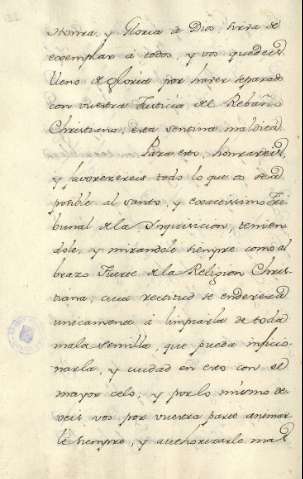 Honra, y Gloria de Dios, sirva de
exemplar à todos, y vos quedeis
lleno de gloria por haver separado
con vuestra Justicia del Rebaño
Christiano, esta semilla maldita.
Para esto, honrareis,
y favorecereis todo lo que os sea
posible al santo, y Tri-
bunal de la Inquisicion, tenien-
dole, y mirandole siempre como al
brazo fuerte de la Religion Chris-
tiana, cuia rectitud se endereza
unicamente à limpiarla de toda
mala semilla, que pueda inficio-
narla, y cuidad en esto con el
mayor celo, y por lo mismo de-
veis vos por vuestra parte animar-
le siempre, y authorizarlo mas